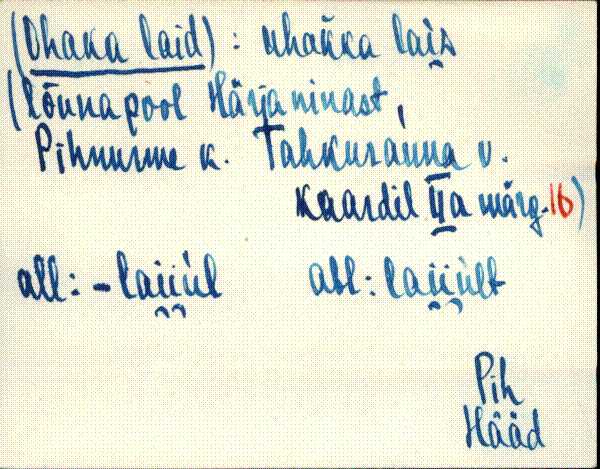 (Ohaka laid) : uhaкka lai̯s
(Lõuna pool Härjaninast,
Pihnurme k. Tahkuranna v.
Kaardil IIa märg. 16)
all: - laii̯ul abl: laii̯ult
Pih
Hääd